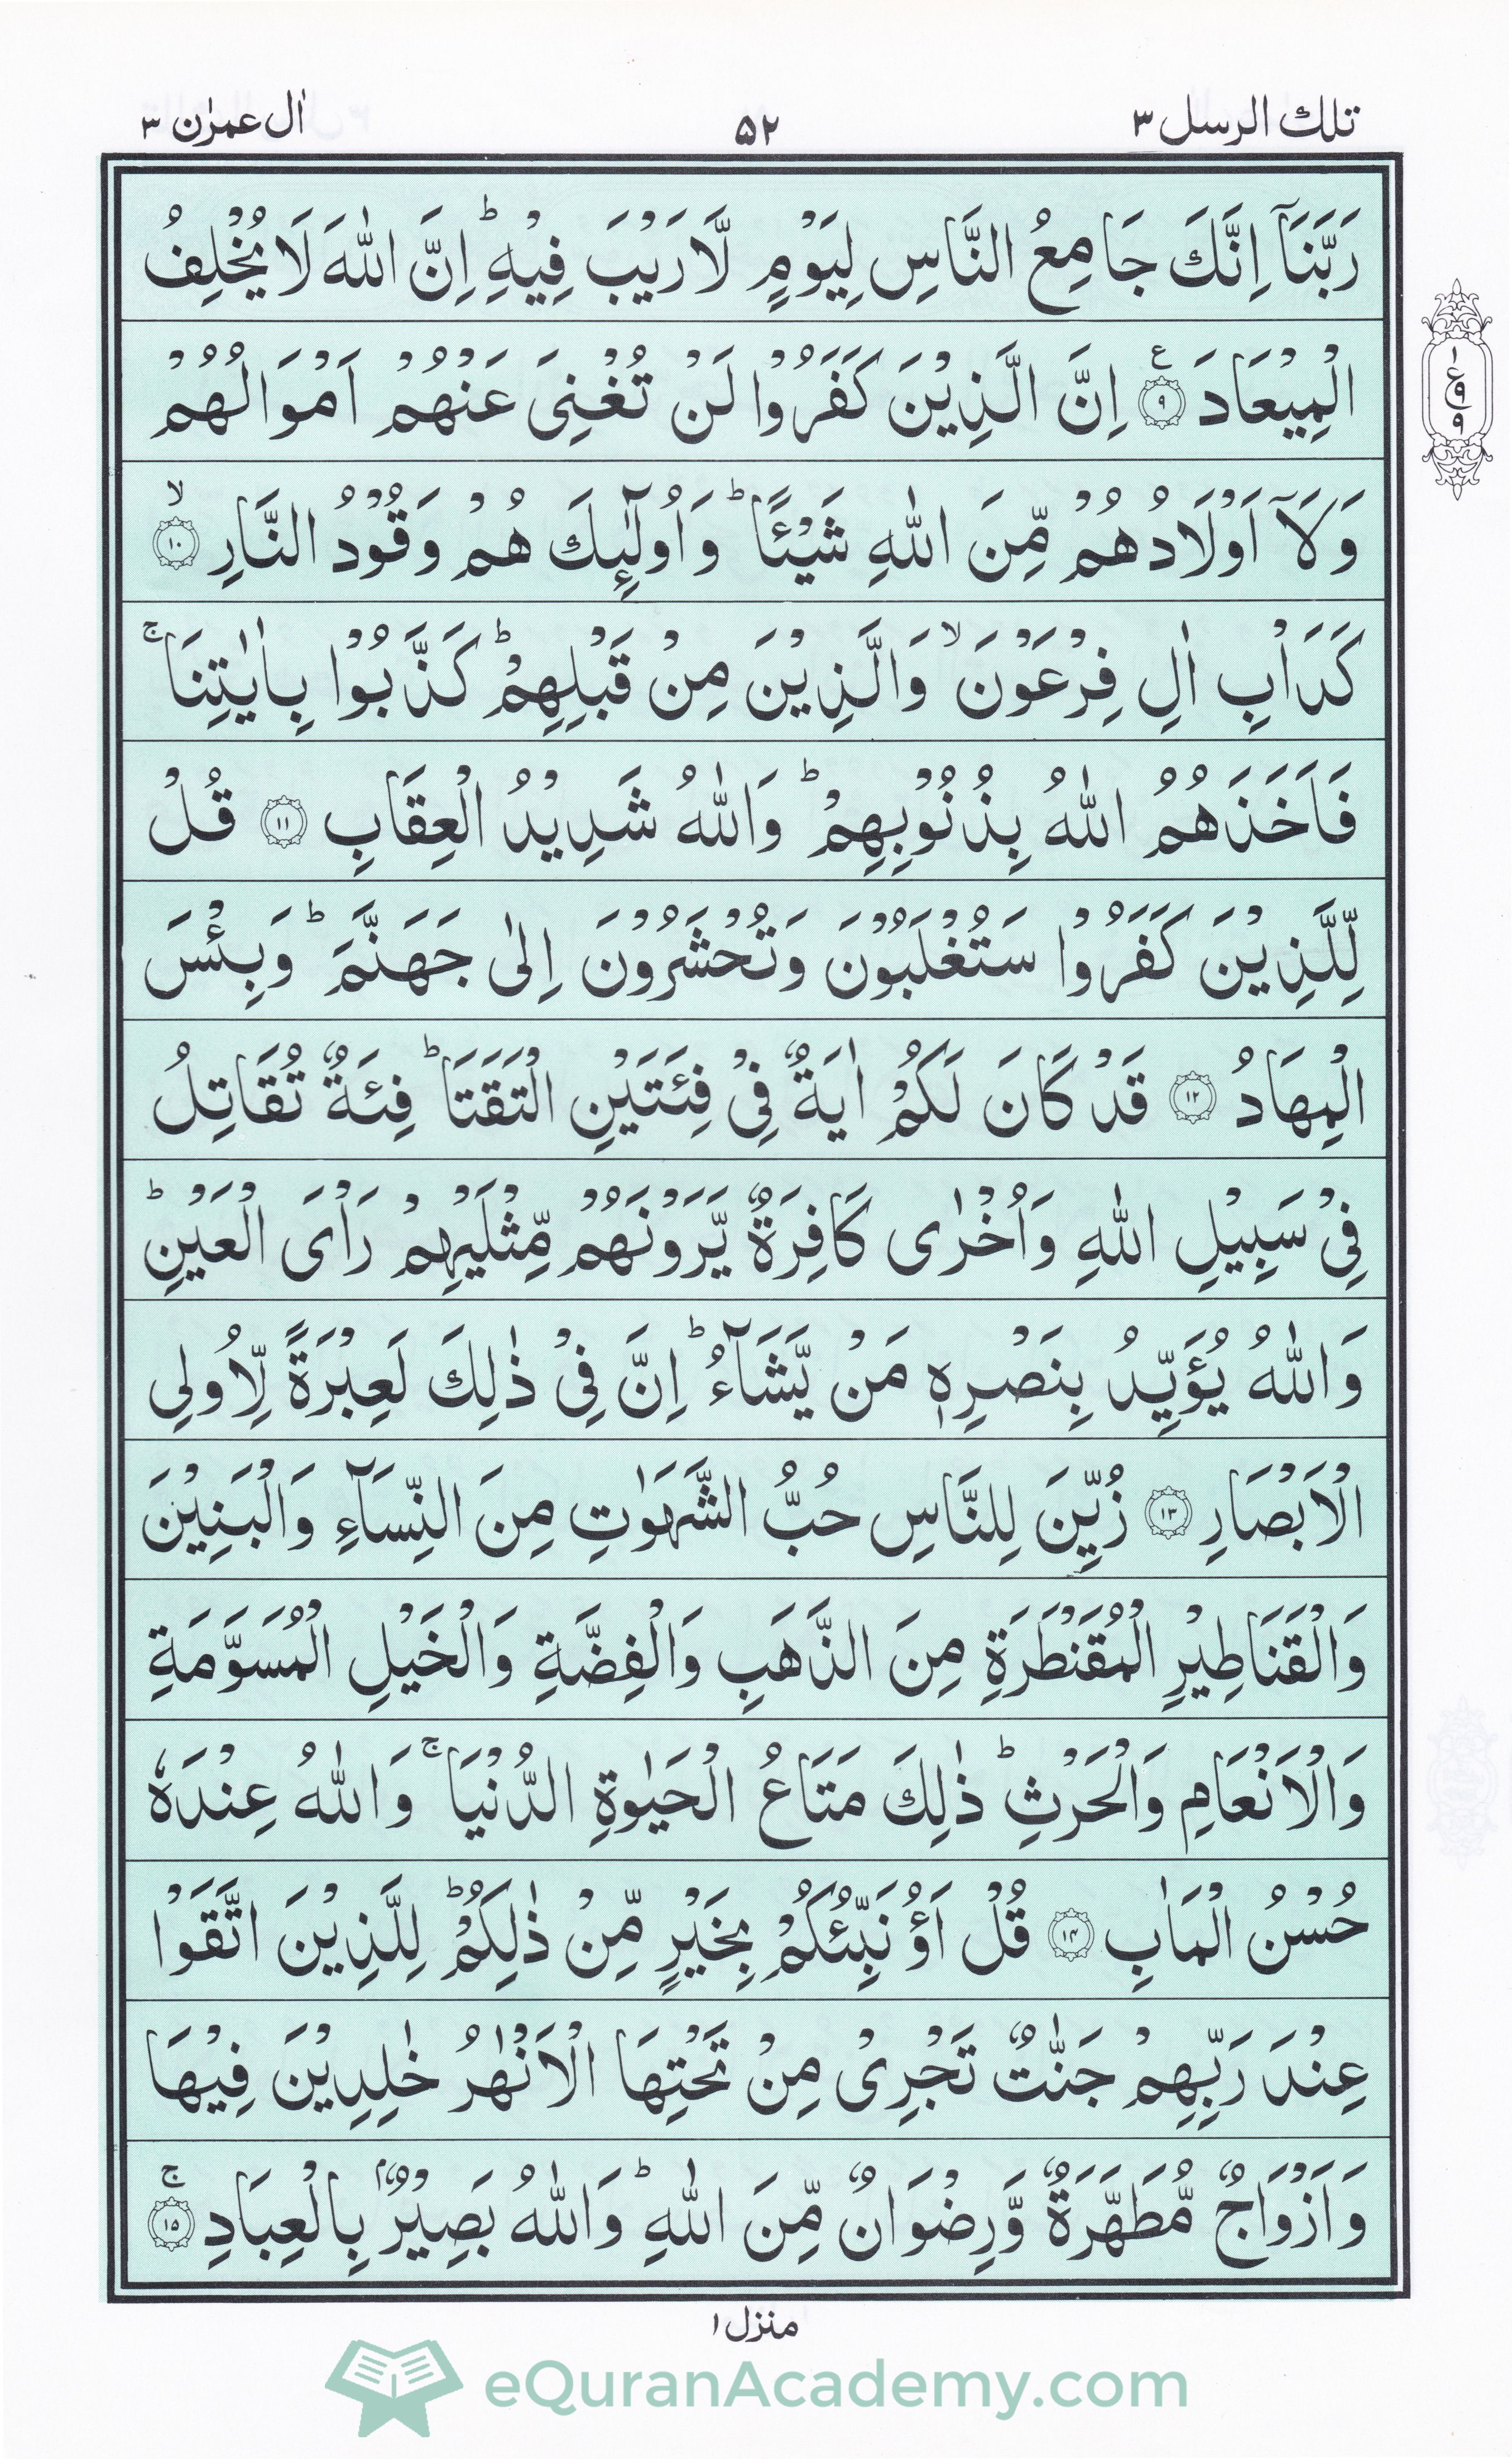 تلك الرسل ٣
٥٢
اٰل عمرٰن ٣
رَبَّنَاۤ اِنَّكَ جَامِعُ النَّاسِ لِيَوْمٍ لَّا رَيْبَ فِيْهِ ؕ اِنَّ اللّٰهَ لَا يُخْلِفُ
الْمِيْعَادَ ۹ۧ اِنَّ الَّذِيْنَ كَفَرُوْا لَنْ تُغْنِىَ عَنْهُمْ اَمْوَالُهُمْ
وَلَاۤ اَوْلَادُهُمْ مِّنَ اللّٰهِ شَيْئًا ؕ وَاُولٰٓئِكَ هُمْ وَقُوْدُ النَّارِ ۱۰ۙ
كَدَاْبِ اٰلِ فِرْعَوْنَ ۙ وَالَّذِيْنَ مِنْ قَبْلِهِمْ ؕ كَذَّبُوْا بِاٰيٰتِنَا ۚ
فَاَخَذَهُمُ اللّٰهُ بِذُنُوْبِهِمْ ؕ وَاللّٰهُ شَدِيْدُ الْعِقَابِ ۱۱ قُلْ
لِّلَّذِيْنَ كَفَرُوْا سَتُغْلَبُوْنَ وَتُحْشَرُوْنَ اِلٰى جَهَنَّمَ ؕ وَبِئْسَ
الْمِهَادُ ۱۲ قَدْ كَانَ لَكُمْ اٰيَةٌ فِىْ فِئَتَيْنِ الْتَقَتَا ؕ فِئَةٌ تُقَاتِلُ
فِىْ سَبِيْلِ اللّٰهِ وَاُخْرٰى كَافِرَةٌ يَّرَوْنَهُمْ مِّثْلَيْهِمْ رَاْىَ الْعَيْنِ ؕ
وَاللّٰهُ يُؤَيِّدُ بِنَصْرِهٖ مَنْ يَّشَآءُ ؕ اِنَّ فِىْ ذٰلِكَ لَعِبْرَةً لِّاُولِى
الْاَبْصَارِ ۱۳ زُيِّنَ لِلنَّاسِ حُبُّ الشَّهَوٰتِ مِنَ النِّسَآءِ وَالْبَنِيْنَ
وَالْقَنَاطِيْرِ الْمُقَنْطَرَةِ مِنَ الذَّهَبِ وَالْفِضَّةِ وَالْخَيْلِ الْمُسَوَّمَةِ
وَالْاَنْعَامِ وَالْحَرْثِ ؕ ذٰلِكَ مَتَاعُ الْحَيٰوةِ الدُّنْيَا ۚ وَاللّٰهُ عِنْدَهٗ
حُسْنُ الْمَاٰبِ ۱۴ قُلْ اَؤُنَبِّئُكُمْ بِخَيْرٍ مِّنْ ذٰلِكُمْ ؕ لِلَّذِيْنَ اتَّقَوْا
عِنْدَ رَبِّهِمْ جَنّٰتٌ تَجْرِىْ مِنْ تَحْتِهَا الْاَنْهٰرُ خٰلِدِيْنَ فِيْهَا
وَاَزْوَاجٌ مُّطَهَّرَةٌ وَّرِضْوَانٌ مِّنَ اللّٰهِ ؕ وَاللّٰهُ بَصِيْرٌۢ بِالْعِبَادِ ۱۵ۚ
١
ع
٩
منزل ۱
eQuranAcademy.com